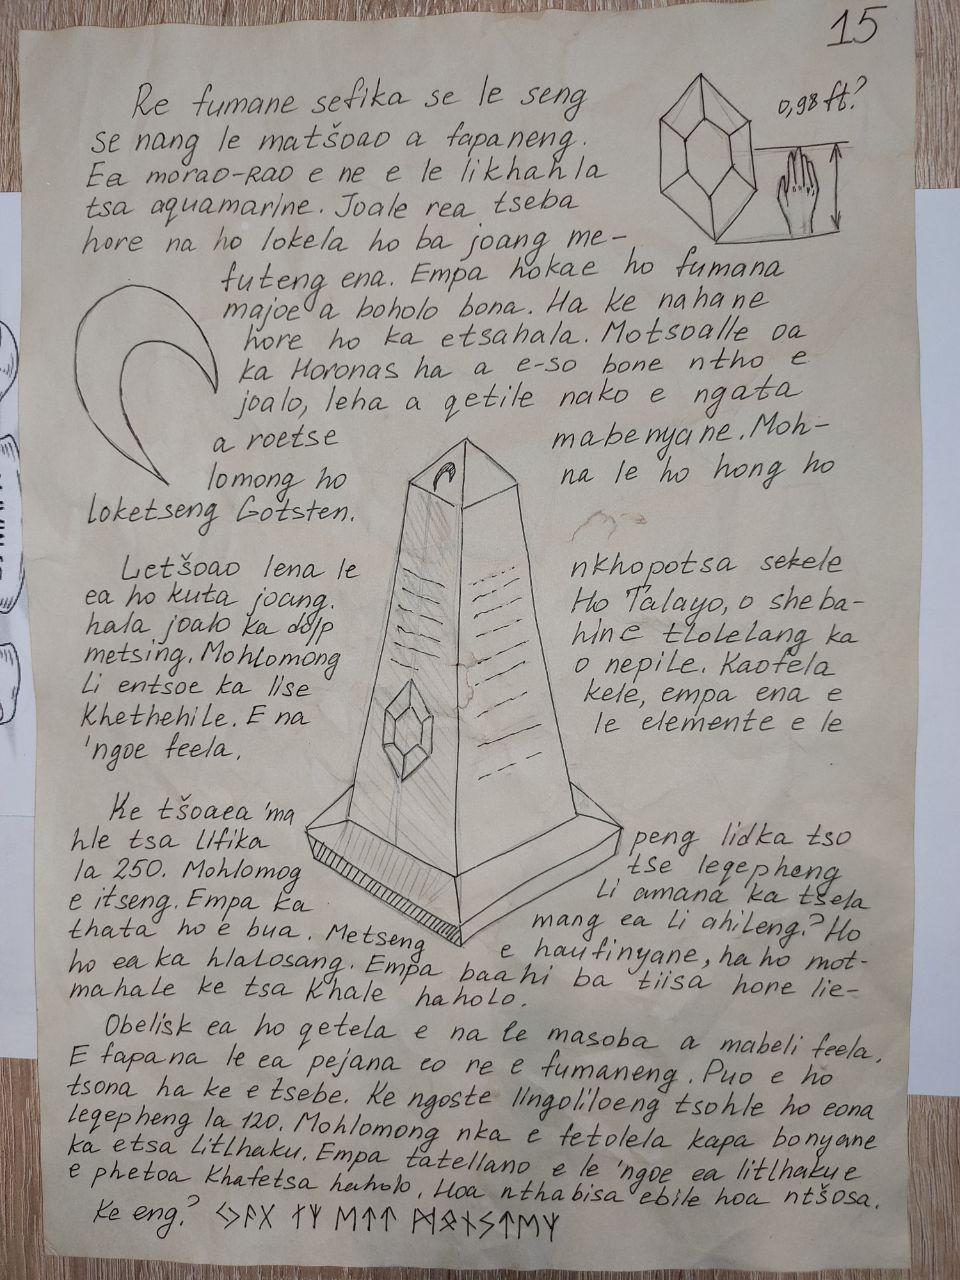 15
Re fumane sefika se le seng
se nang le matšoao a fapaneng.
Ea morao-rao e ne e le likhahla
tsa aquamarine. Joale rea tseba
hore na ho lokela ho ba joang me-
0,98 ft?
futeng ena. Empa hokae ho fumana
majoe a boholo bona. Ha ke nahane
hore ho ka etsahala. Motsoalle oa
ka Horonas ha a e-so bone ntho e
joalo, leha a qetile nako e ngata
a roetse mabenyane. Moh-
lomong ho na le ho hong ho
loketseng Gotsten.
Letšoao lena le nkhopotsa sekele
ea ho kuta joang. Ho Talayo, o sheba-
hala joalo ka hine tlolelang ka
metsing. Mohlomong o nepile. Kaofela
li entsoe ka lise kele, empa ena e
khethehile. E na le elemente e le
'ngoe feela.
Ke tšoaea 'ma peng lidka tso
hle tsa lifika tse leqepheng
la 250. Mohlomog li amana ka tsela
e itseng. Empa ka mang ea li ahileng? Ho
thata ho e bua. Metseng e haufinyane, ha ho mot-
ho ea ka hlalosang. Empa baahi ba tiisa hore lie-
mahale ke tsa khale haholo.
Obelisk ea ho qetela e na le masoba a mabeli feela.
E fapana le ea pejana eo re e fumaneng. Puo e ho
tsona ha ke e tsebe. Ke ngoste lingoliloeng tsohle ho eona
leqepheng la 120. Mohlomong nka e fetolela kapa bonyane
ka etsa litlhaku. Empa tatellano e le 'ngoe ea litlhaku e
e phetoa khafetsa haholo. Hoa nthabisa ebile hoa ntšosa.
Ke eng?